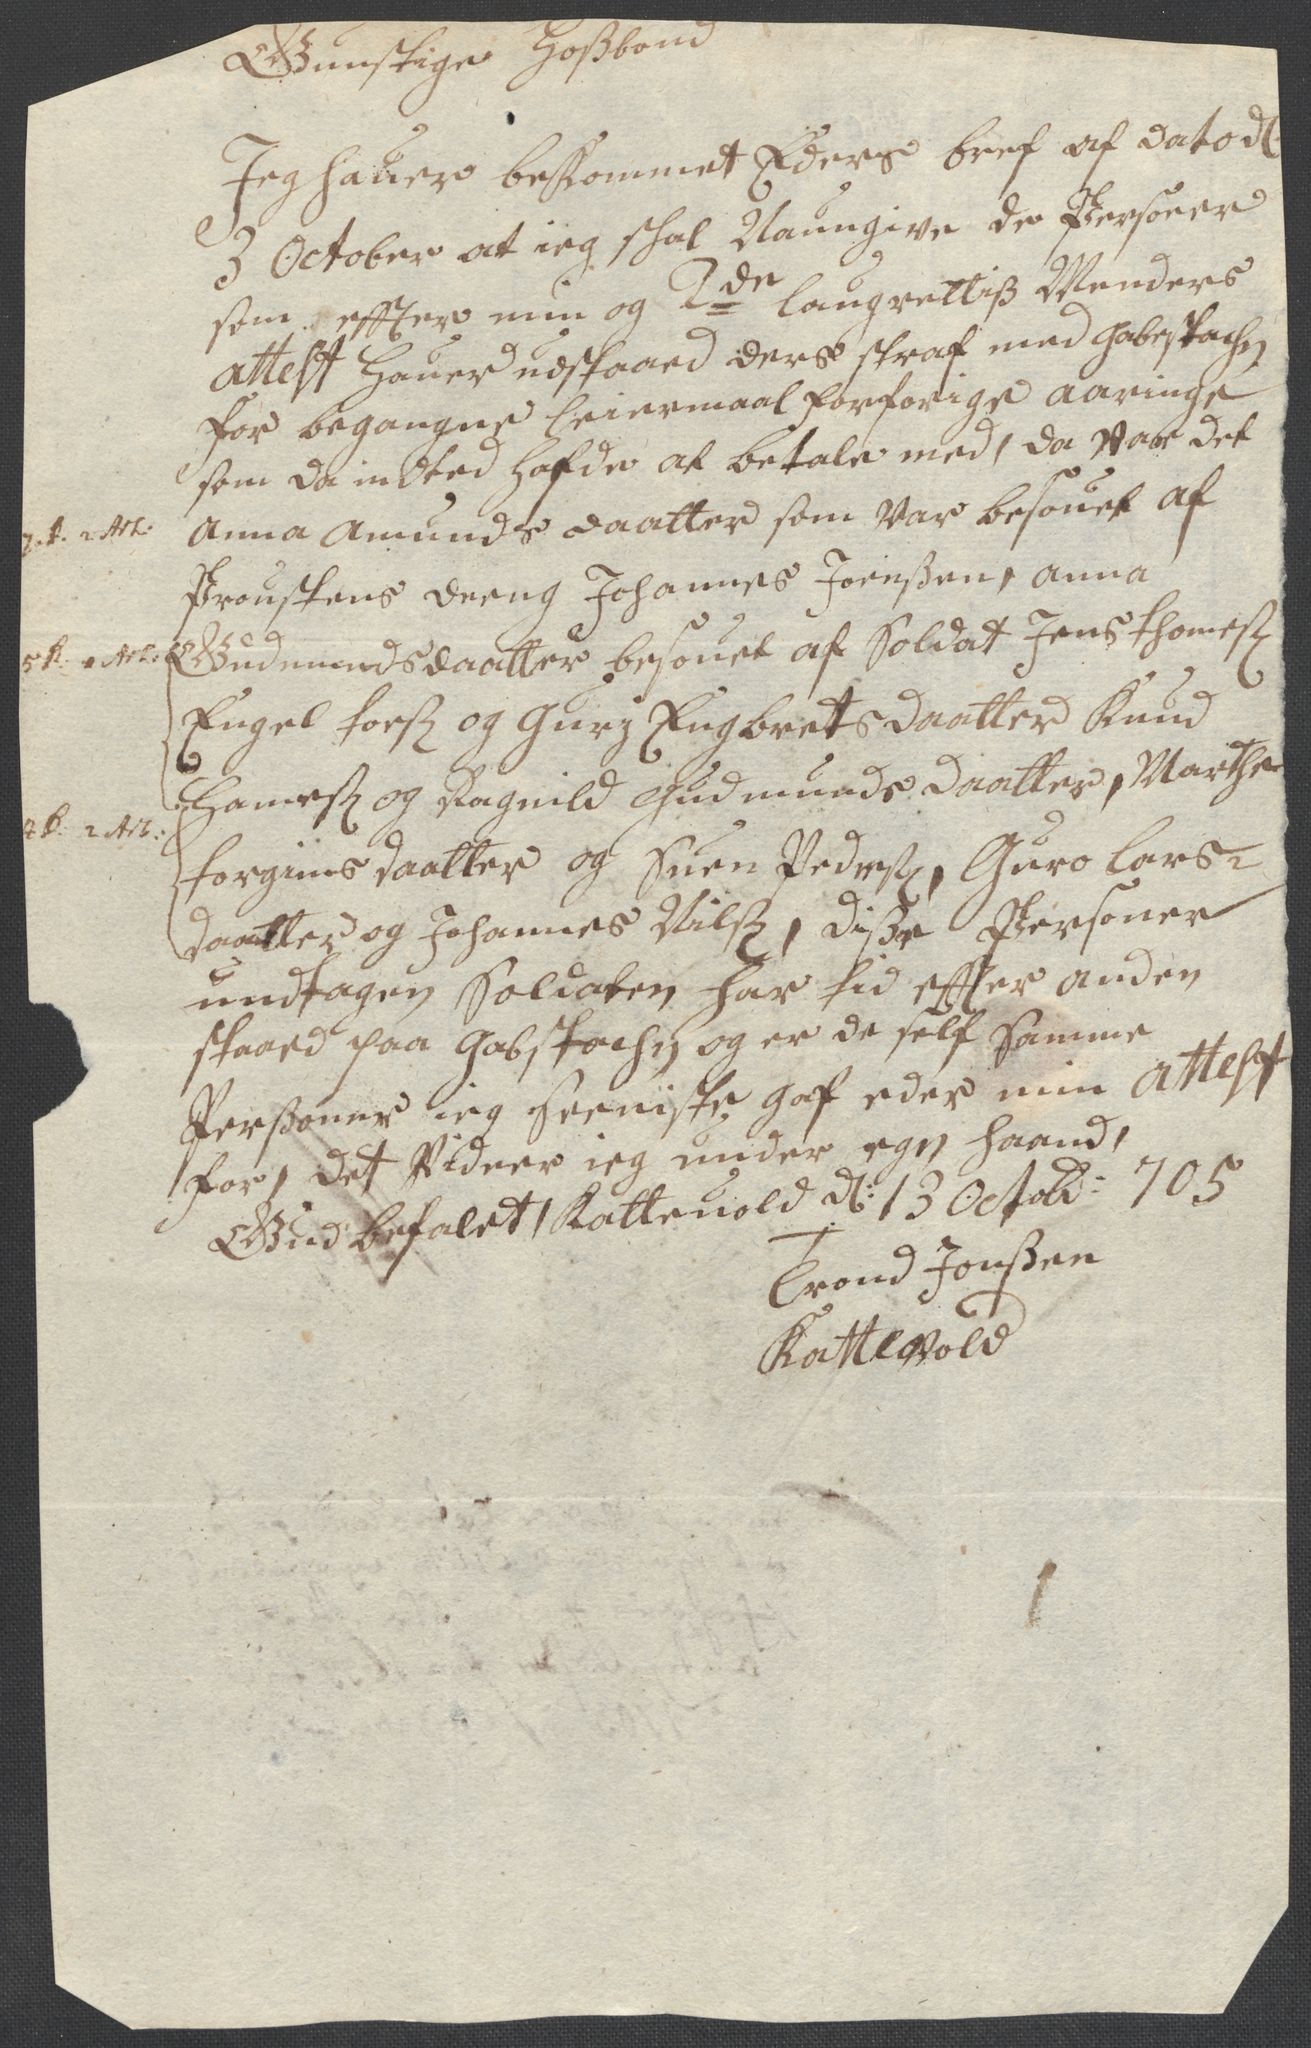 Gunstige Hoßbond
Jeg hauer bekommet Eders bref af dato d.
3 October at ieg skal Naungive de Personer
som effter min og 2de laugrettiß Menders
attest Hauer udstaaed ders straf med gabestochen
for begangne leiermaal for forige aaringe
som da indted hafde at betale med, da var det
Anna Amunds daatter som var besouet af
Proustens dreng Johannes Joenßen, anna
Gudmunds daatter besouet af Soldat Jens thomeß
Engel toeß og Gurj Engbrets daatter Knud
Hanneß og Ragnild Gudmunds daatter, Marthe
torgiius daatter og Suen Pederß, Guro lars
daatter og Johannes Nilß, diße Personer
undtagen Soldaten har tid effter anden
staaed paa gabstochen og er de self samme
Perßoner ieg seeniste gaf eder min attest
for, det Vidner ieg under egen haand,
Gud befalet, Kattevold d: 13 Octob: 705
Trond Jonßen
Kattevold
2 Art:
5 P: 1 Art:
4 P: 2 Art: